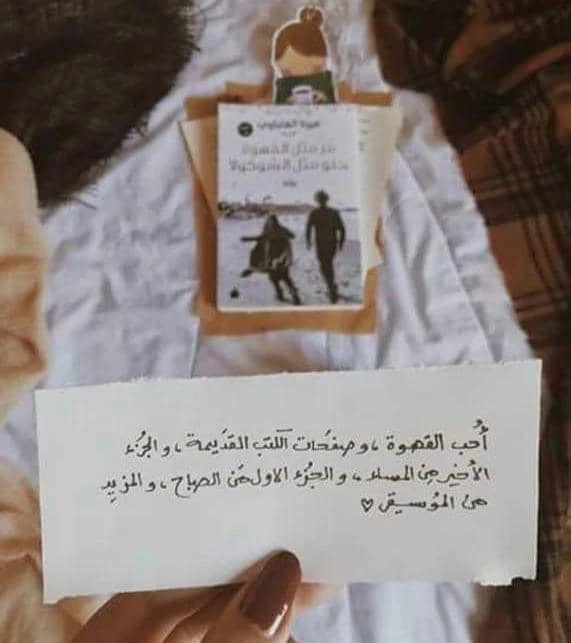 مر مثل القهوة
حلو مثل الشوكولا
رواية
أُحب القهوة ، و صفحَات الكتب القدَيمة ، و الجُزء
الأخير مِن المساء ، و الجُزء الاول مَن الصباح ، و المزيد
من المُوسيقى ♡